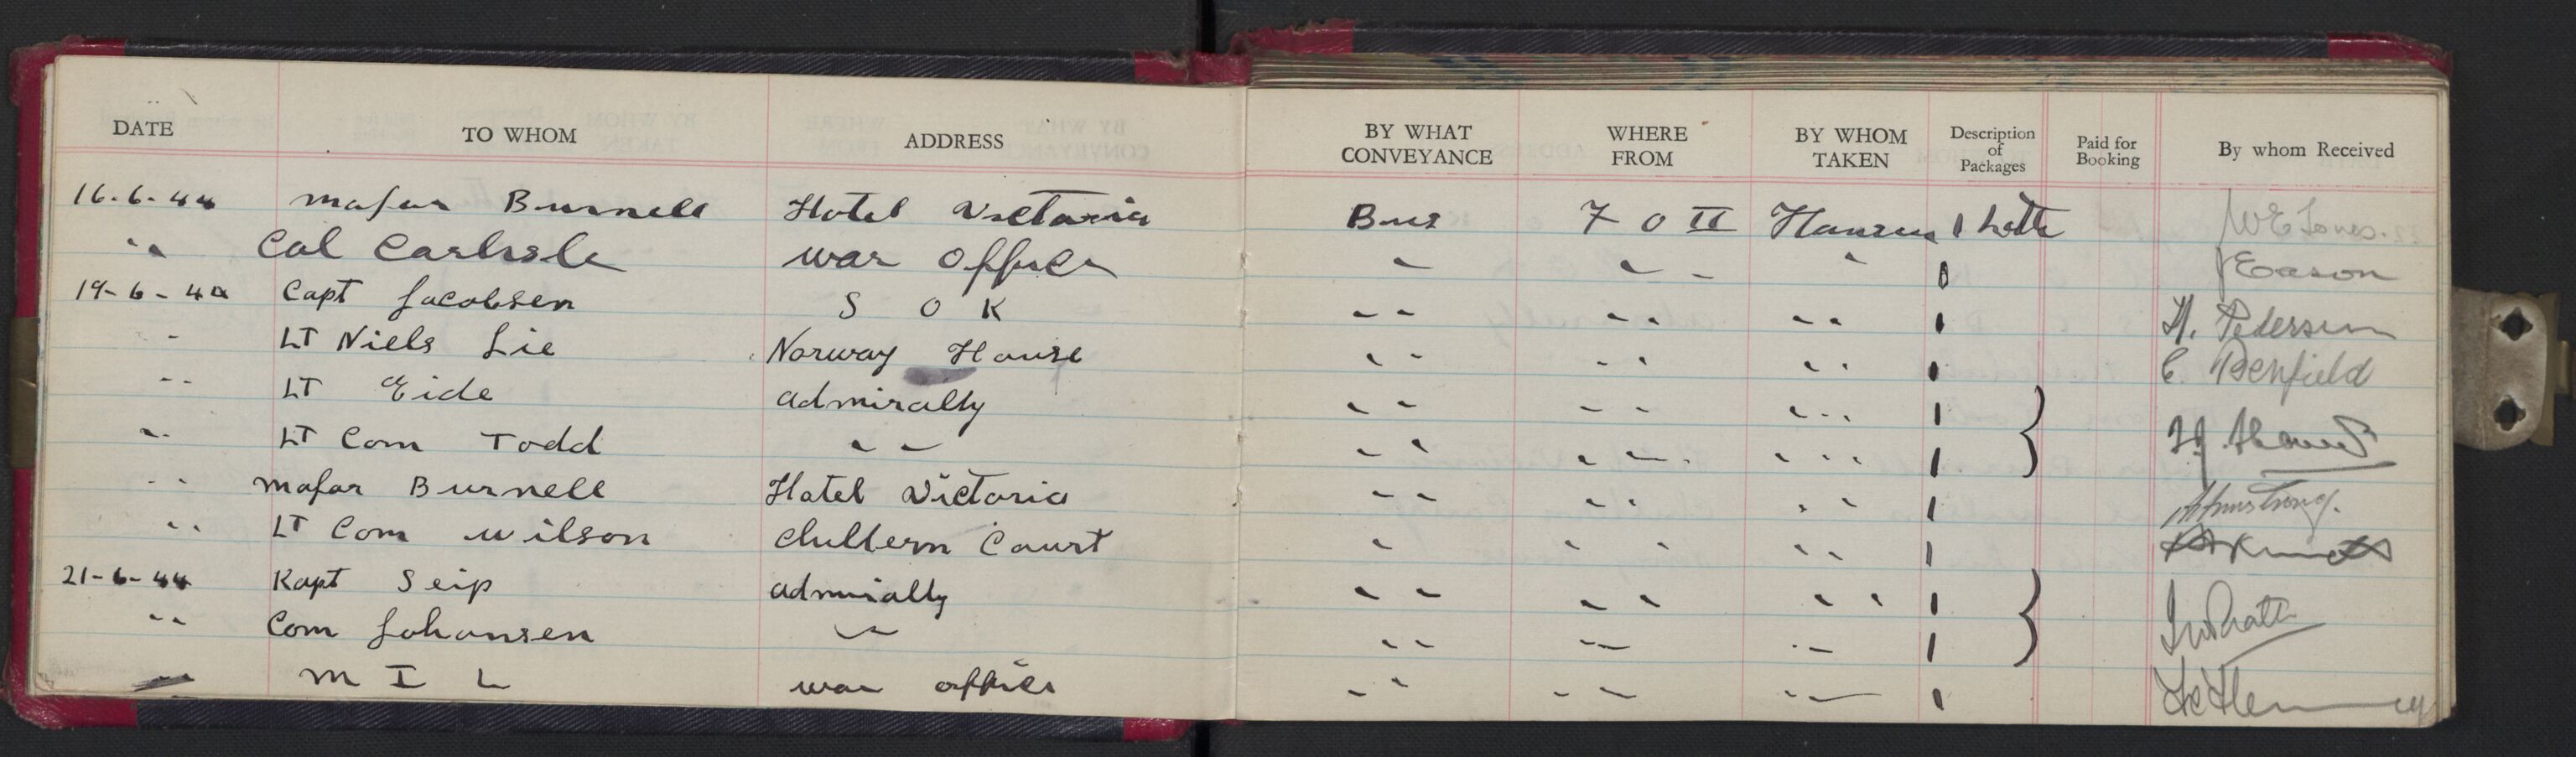 DATE TO WHOM ADDRESS BY WHAT CONVEYANCE WHERE FROM BY WHOM TAKEN Description of Packages Paid for Booking By whom Received
16.6.44 Major Burnell Hotel Victoria Bus F O II Hansen 1 Lett W E Jones
" Col Carlisle War Office " " " " 1 J Eason
19-6-44 Capt Jacobsen S O K " " " " " " 1 H. Pedersen
" LT Niels Lie Norway House " " " " " " 1 C. Penfield
" " LT Eide admiralty " " " " " " 1
" " LT Com Todd " " " " " " " " 1
" " Major Burnell Hotel Victoria " " " " " " 1 Armstrong.
" " LT Com Wilson Chiltern Court " " " " " 1
21-6-44 Kapt Seip admiralty " " " " " " 1
" " Com Johansen " " " " " " " 1
" M I L War office " " " " " " 1